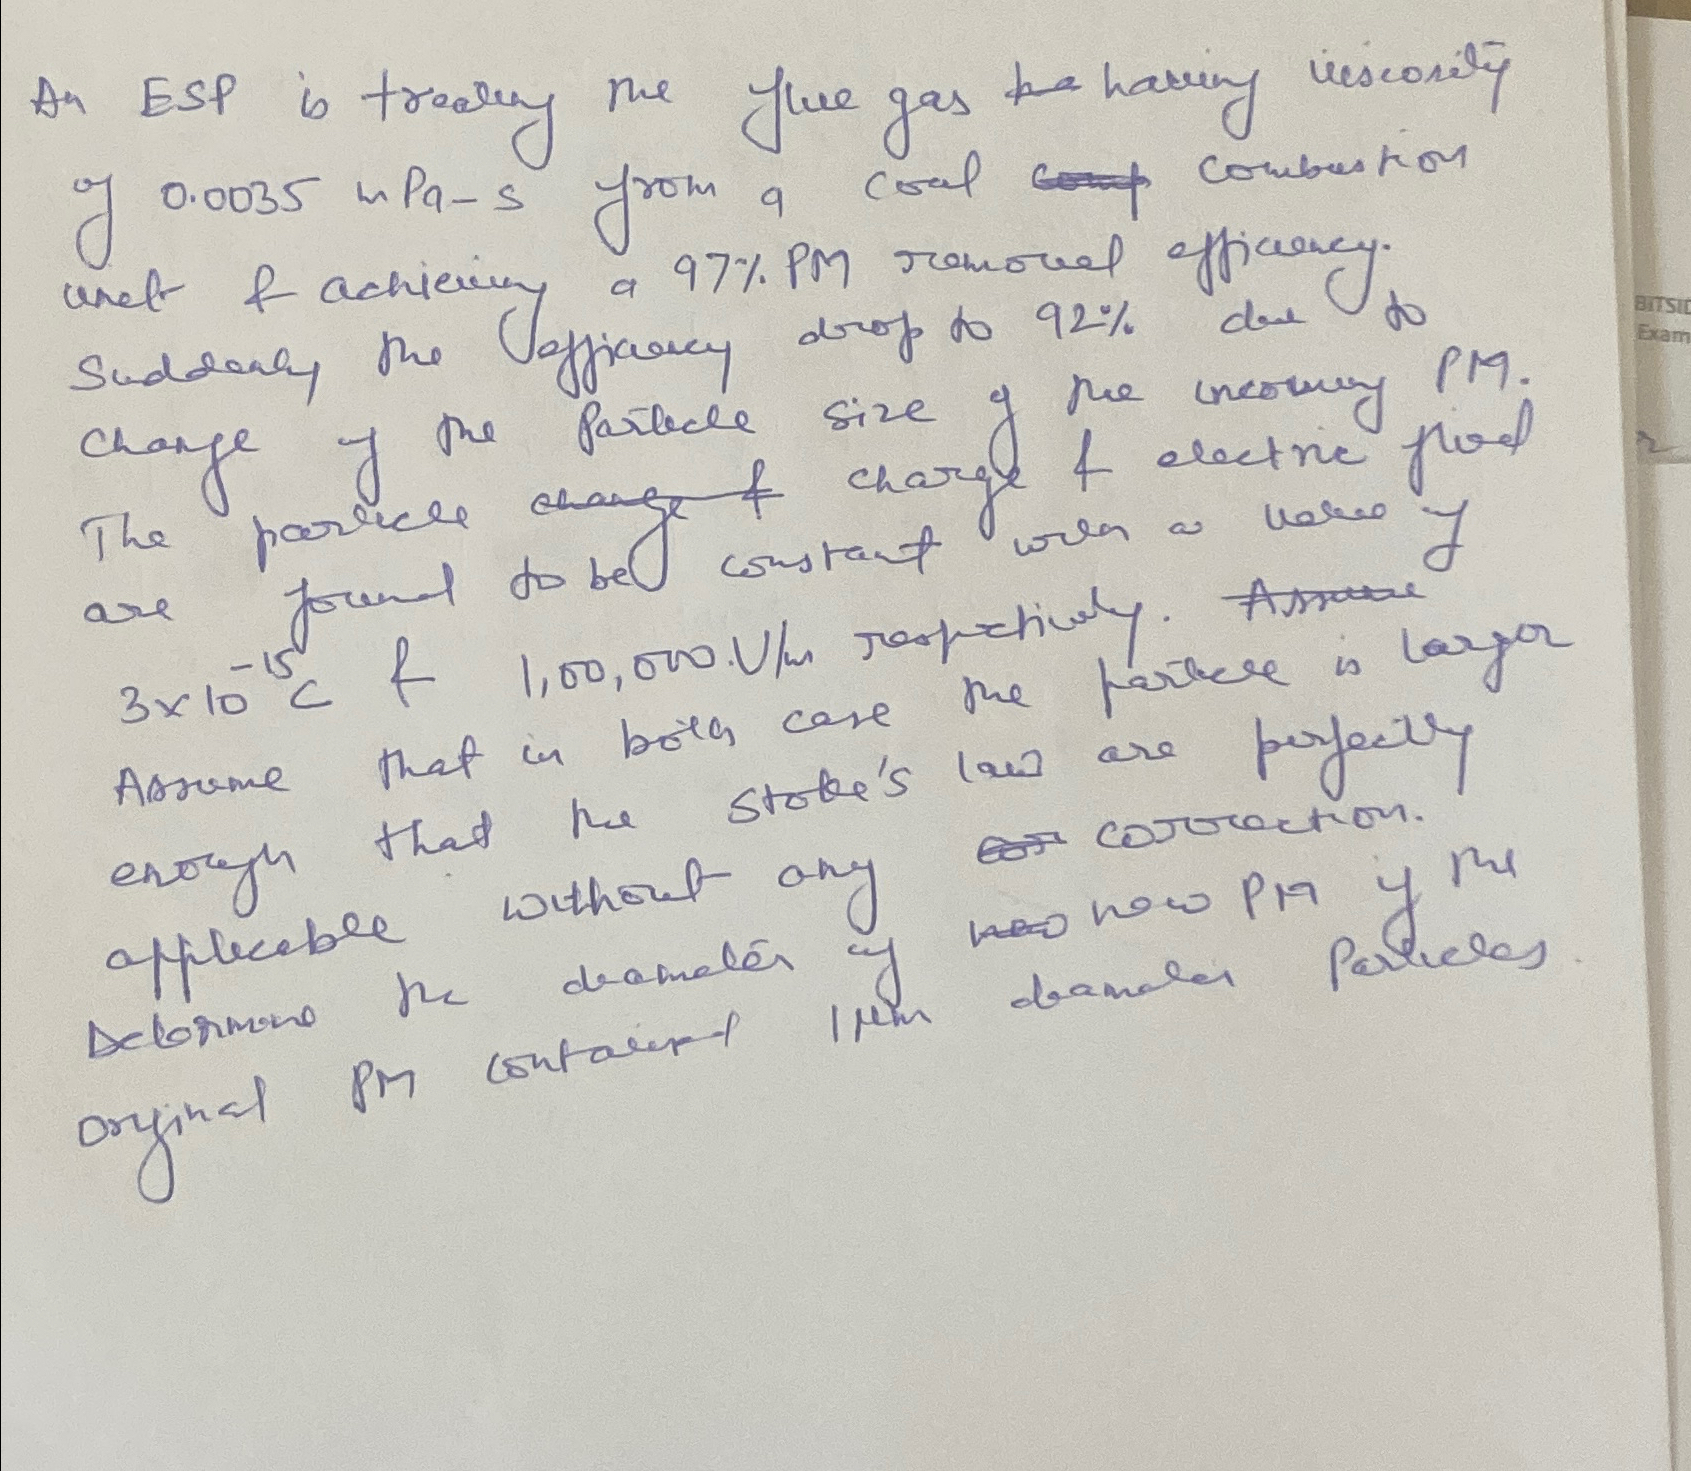 An ESP is treating the flue gas having viscosity
of 0.0035 mPa-s from a coal combustion
unit & achieving a 97% PM removal efficiency.
Suddenly the efficiency drop to 92% due to
change of the Particle size of the incoming PM.
The particle charge & electric field
are found to be constant with a value of
3x10⁻¹⁵C & 1,00,000 V/m respectively.
Assume that in both case the particle is larger
enough that the Stoke's law are perfectly
applicable without any correction.
Determine the diameter of new PM if the
original PM contained 1 μm diameter Particles.
BITSID
Exam